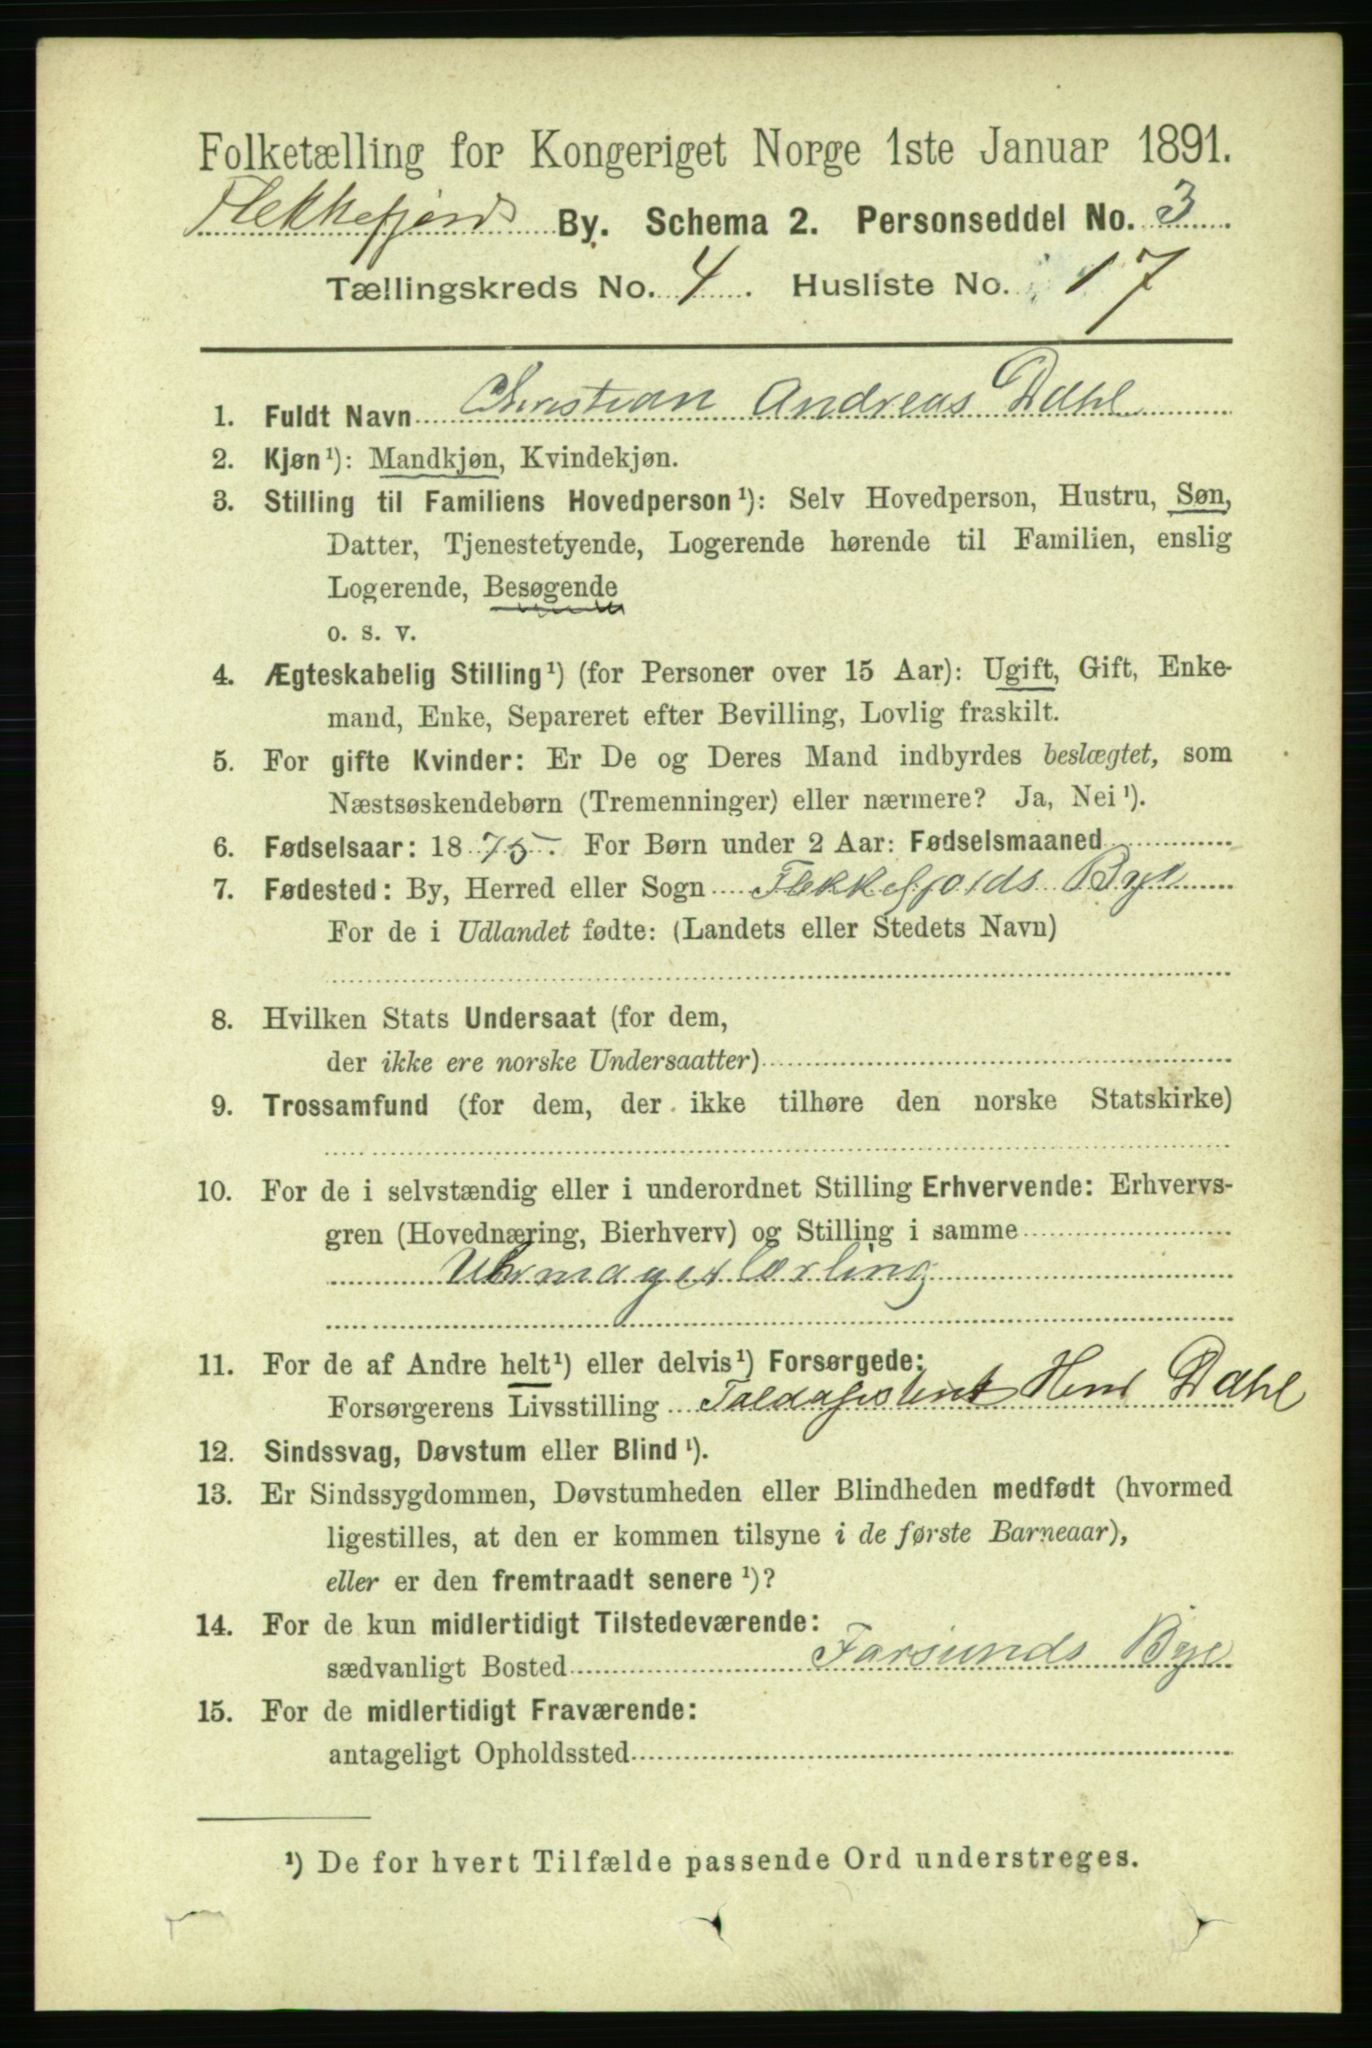 Folketælling for Kongeriget Norge 1ste Januar 1891.
Flekkefjords By. Schema 2. Personseddel No. 3
Tællingskreds No. 4. Husliste No. 17
1. Fuldt Navn Christian Andreas Dahl
2. Kjøn¹): Mandkjøn, Kvindekjøn.
3. Stilling til Familiens Hovedperson¹): Selv Hovedperson, Hustru, Søn,
Datter, Tjenestetyende, Logerende hørende til Familien, enslig
Logerende, Besøgende
o. s. v.
4. Ægteskabelig Stilling¹) (for Personer over 15 Aar): Ugift, Gift, Enke-
mand, Enke, Separeret efter Bevilling, Lovlig fraskilt.
5. For gifte Kvinder: Er De og Deres Mand indbyrdes beslægtet, som
Næstsøskendebørn (Tremenninger) eller nærmere? Ja, Nei¹).
6. Fødselsaar: 1875. For Børn under 2 Aar: Fødselsmaaned
7. Fødested: By, Herred eller Sogn Flekkefjords Bye
For de i Udlandet fødte: (Landets eller Stedets Navn)
8. Hvilken Stats Undersaat (for dem,
der ikke ere norske Undersaatter)
9. Trossamfund (for dem, der ikke tilhøre den norske Statskirke)
10. For de i selvstændig eller i underordnet Stilling Erhvervende: Erhvervs-
gren (Hovednæring, Bierhverv) og Stilling i samme
Uhrmagerlærling
11. For de af Andre helt¹) eller delvis¹) Forsørgede:
Forsørgerens Livsstilling Toldassistent Dahl
12. Sindssvag, Døvstum eller Blind¹).
13. Er Sindssygdommen, Døvstumheden eller Blindheden medfødt (hvormed
ligestilles, at den er kommen tilsyne i de første Barneaar),
eller er den fremtraadt senere¹)?
14. For de kun midlertidigt Tilstedeværende:
sædvanligt Bosted Farsunds Bye
15. For de midlertidigt Fraværende:
antageligt Opholdssted
¹) De for hvert Tilfælde passende Ord understreges.